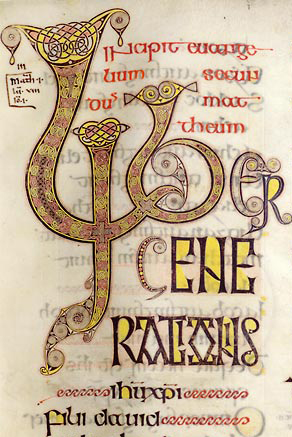 Incipit euange
lium secun
dum mat
theum
LIBER
GENE
RATIONIS
ihu xpi
fili dauid